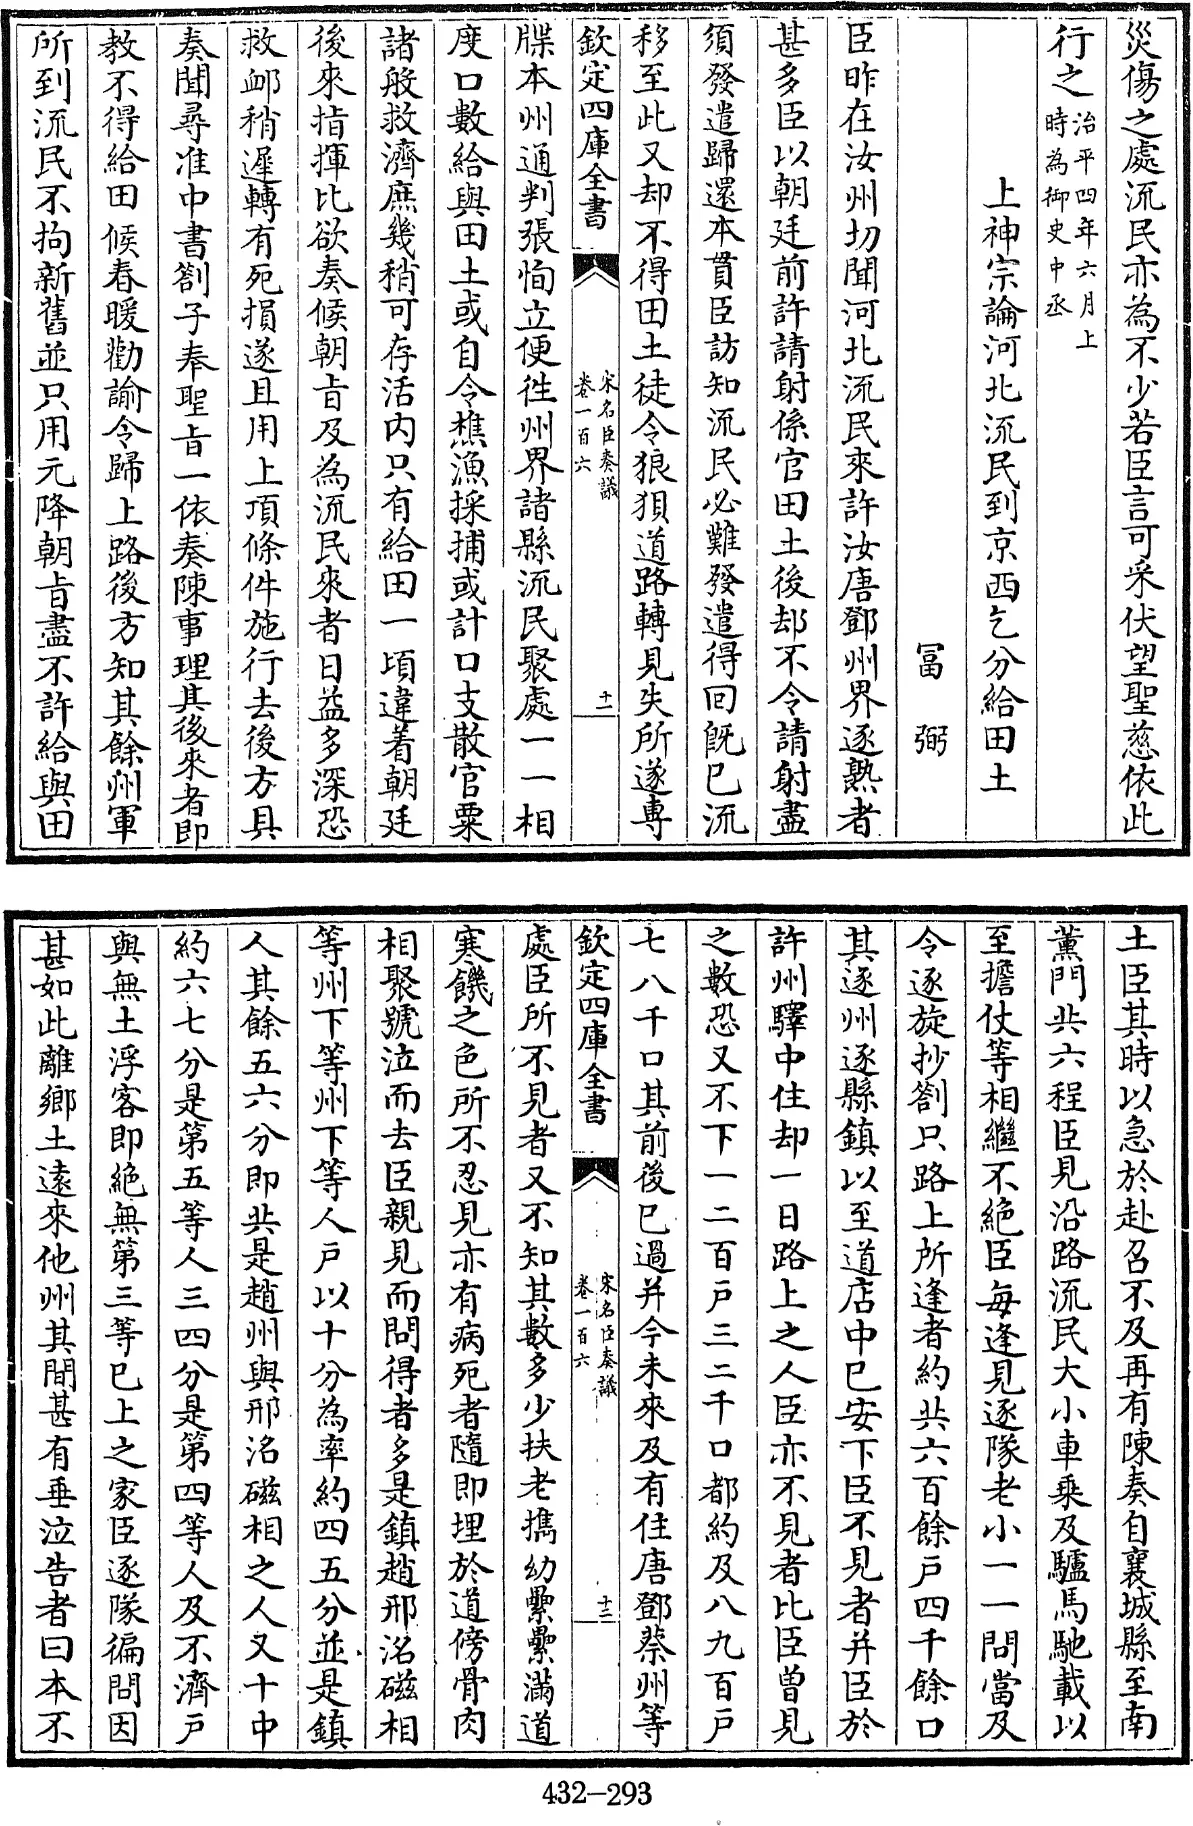 災傷之處流民亦為不少若臣言可采伏望聖慈依此
行之治平四年六月上
時為御史中丞
上神宗論河北流民到京西乞分給田土
富弼
臣昨在汝州切聞河北流民來許汝唐鄧州界逐熟者
甚多臣以朝廷前許請射係官田土後却不令請射盡
須發遣歸還本貫臣訪知流民必難發遣得回旣已流
移至此又却不得田土徒令狼狽道路轉見失所遂專
欽定四庫全書
宋名臣奏議
卷一百六
十一
牒本州通判張恂立便徃州界諸縣流民聚處一一相
度口數給與田土或自令樵漁採捕或計口支散官粟
諸般救濟庶幾稍可存活内只有給田一頃違着朝廷
後來指揮比欲奏候朝旨及為流民來者日益多深恐
救卹稍遲轉有死損遂且用上項條件施行去後方具
奏聞尋准中書劄子奉聖旨一依奏陳事理其後來者即
教不得給田候春暖勸諭令歸上路後方知其餘州軍
所到流民不拘新舊並只用元降朝旨盡不許給與田
土臣其時以急於赴召不及再有陳奏自襄城縣至南
薰門共六程臣見沿路流民大小車乘及驢馬馳載以
至擔仗等相繼不絶臣每逢見逐隊老小一一問當及
令逐旋抄劄只路上所逢者約共六百餘戸四千餘口
其逐州逐縣鎮以至道店中已安下臣不見者并臣於
許州驛中住却一日路上之人臣亦不見者比臣曽見
之數恐又不下一二百戸三二千口都約及八九百戸
七八千口其前後已過并今未來及有住唐鄧蔡州等
欽定四庫全書
宋名臣奏議
卷一百六
十二
處臣所不見者又不知其數多少扶老擕幼纍纍滿道
寒饑之色所不忍見亦有病死者隨即埋於道傍骨肉
相聚號泣而去臣親見而問得者多是鎮趙邢洺磁相
等州下等州下等人戸以十分為率約四五分並是鎮
人其餘五六分即共是趙州與邢洺磁相之人又十中
約六七分是第五等人三四分是第四等人及不濟戸
與無土浮客即絶無第三等已上之家臣逐隊徧問因
甚如此離鄉土遠來他州其間甚有垂泣告者曰本不
432-293